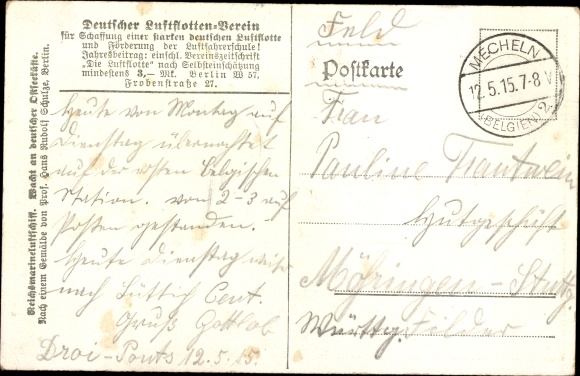 Deutscher Luftflotten-Verein
für Schaffung einer starken deutschen Luftflotte
und Förderung der Luftfahrerschule!
Jahresbeitrag: einschl. Vereinszeitschrift
„Die Luftflotte“ nach Selbsteinschätzung
mindestens 3,— Mk. Berlin W 57,
Frobenstraße 27.
Heute von Montag auf
Dienstag übernachtet
auf der ersten Belgischen
Station. von 2-3 auf
Posten gestanden.
Heute Dienstag weiter
nach Lüttich Cent.
Gruß Gottlob
Droi-Ponts 12.5.15.
Reichsmarineluftschiff. Wacht an deutscher Ostseeküste.
Nach einem Gemälde von Prof. Hans Rudolf Schulze, Berlin.
Feld
Postkarte
MECHELN
12.5.15.7-8V
(BELGIEN) 2
Frau
Pauline Trautwein
Hutgeschäft
Möhringen-Stuttg.
Württg. Filder